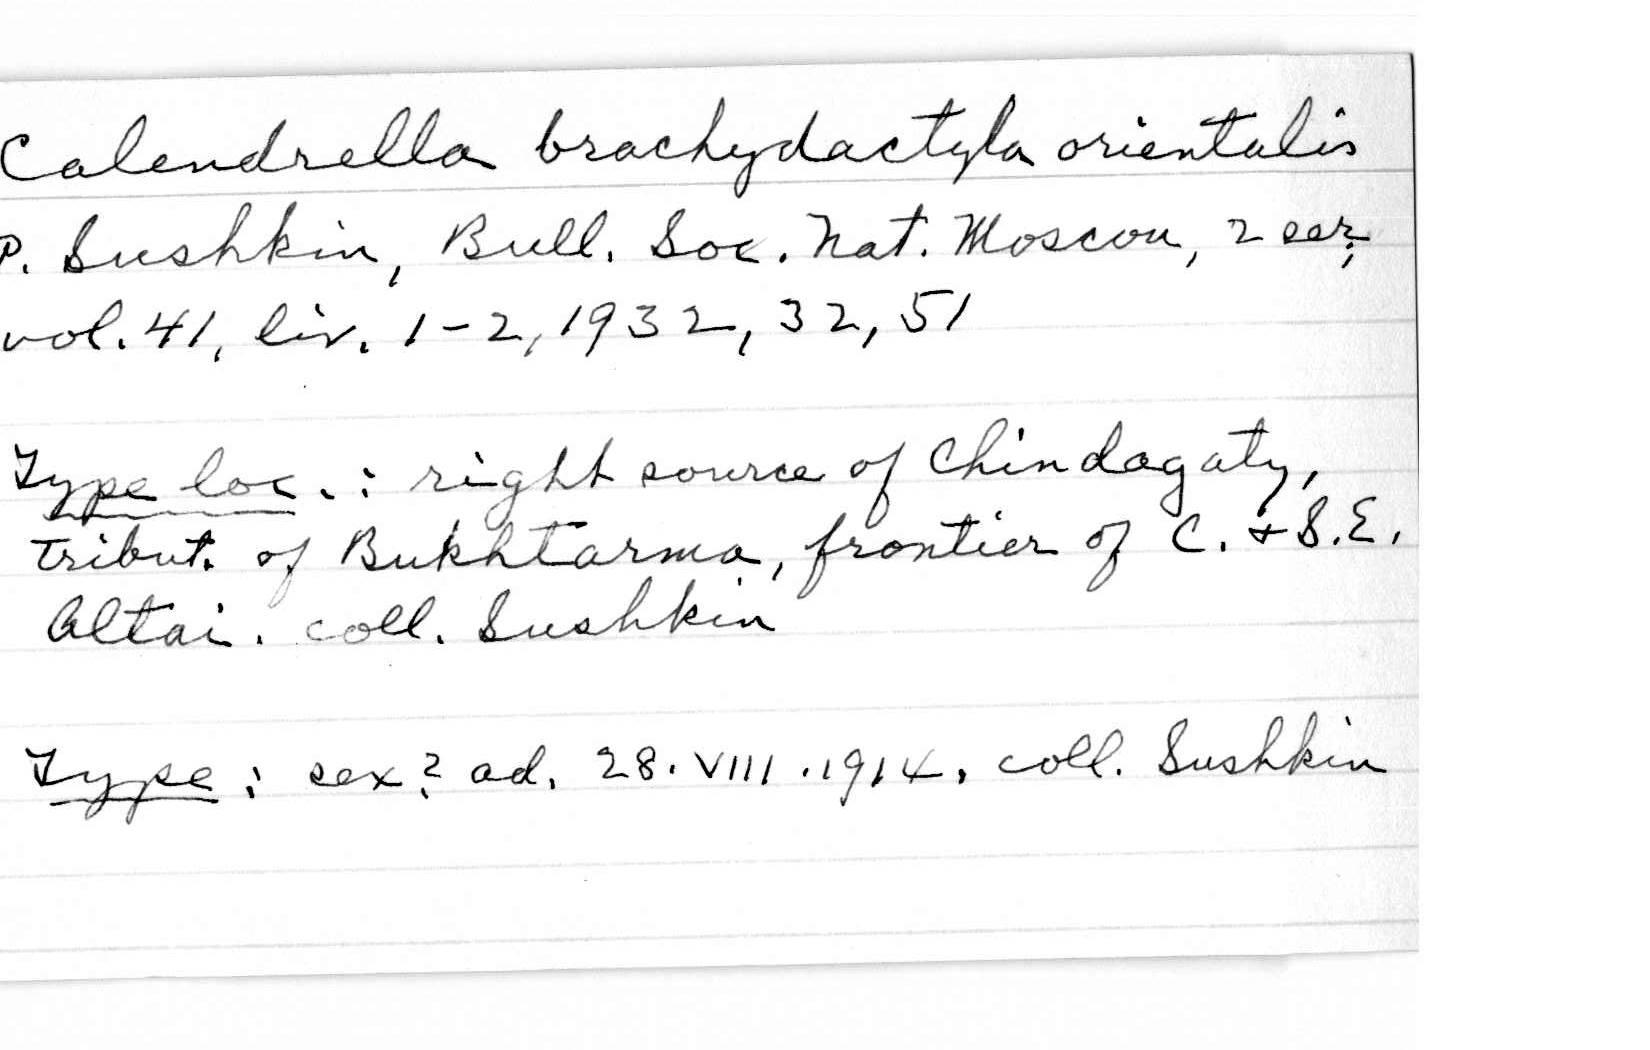 Calendrella brachydactyla orientalis
P. Sushkin, Bull. Soc. Nat. Moscou, 2 ser,
vol. 41, liv. 1-2, 1932, 32, 51
Type loc.: right source of Chindagaty,
Tribut. of Bukhtarma, frontier of C. + S.E.
Altai. coll. Sushkin
Type: sex? ad. 28.VIII.1914, coll. Sushkin